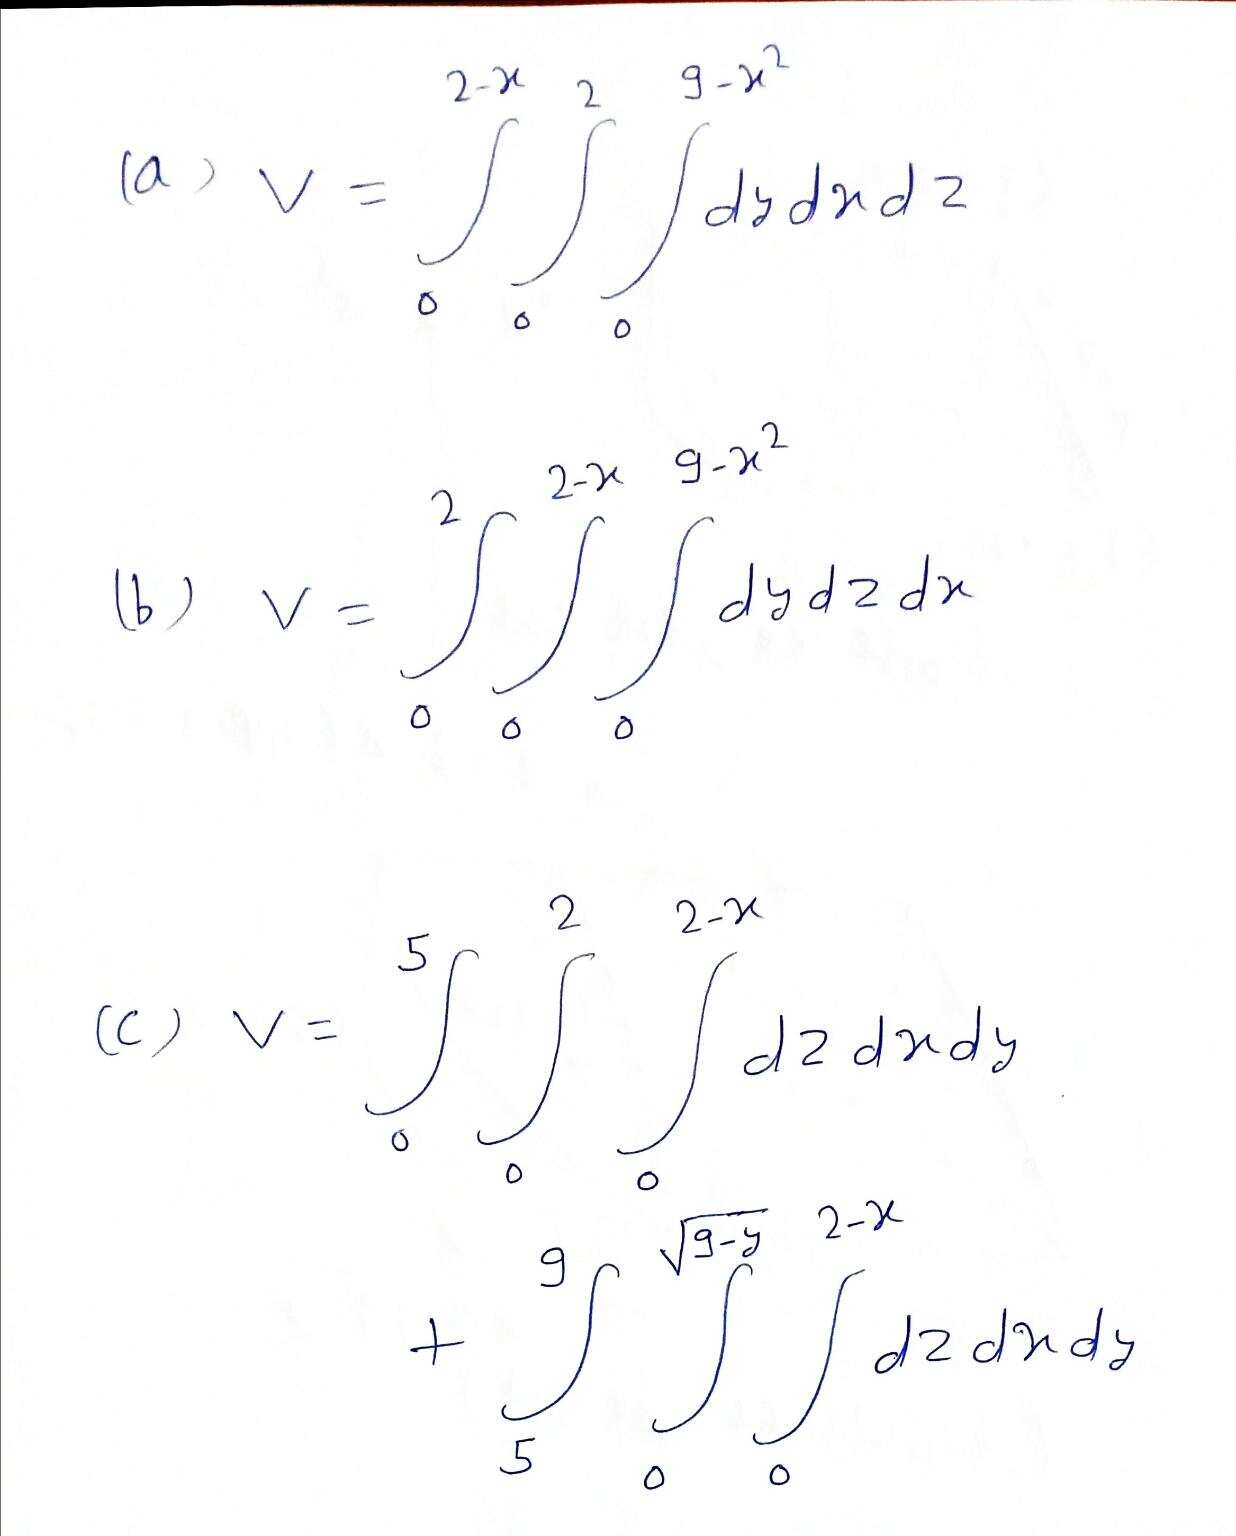 (a) V = ∫₀^{2-x} ∫₀^{2} ∫₀^{9-x²} dy dx dz
(b) V = ∫₀^{2} ∫₀^{2-x} ∫₀^{9-x²} dy dz dx
(c) V = ∫₀^{5} ∫₀^{2} ∫₀^{2-x} dz dx dy
+ ∫₅^{9} ∫₀^{√(9-y)} ∫₀^{2-x} dz dx dy